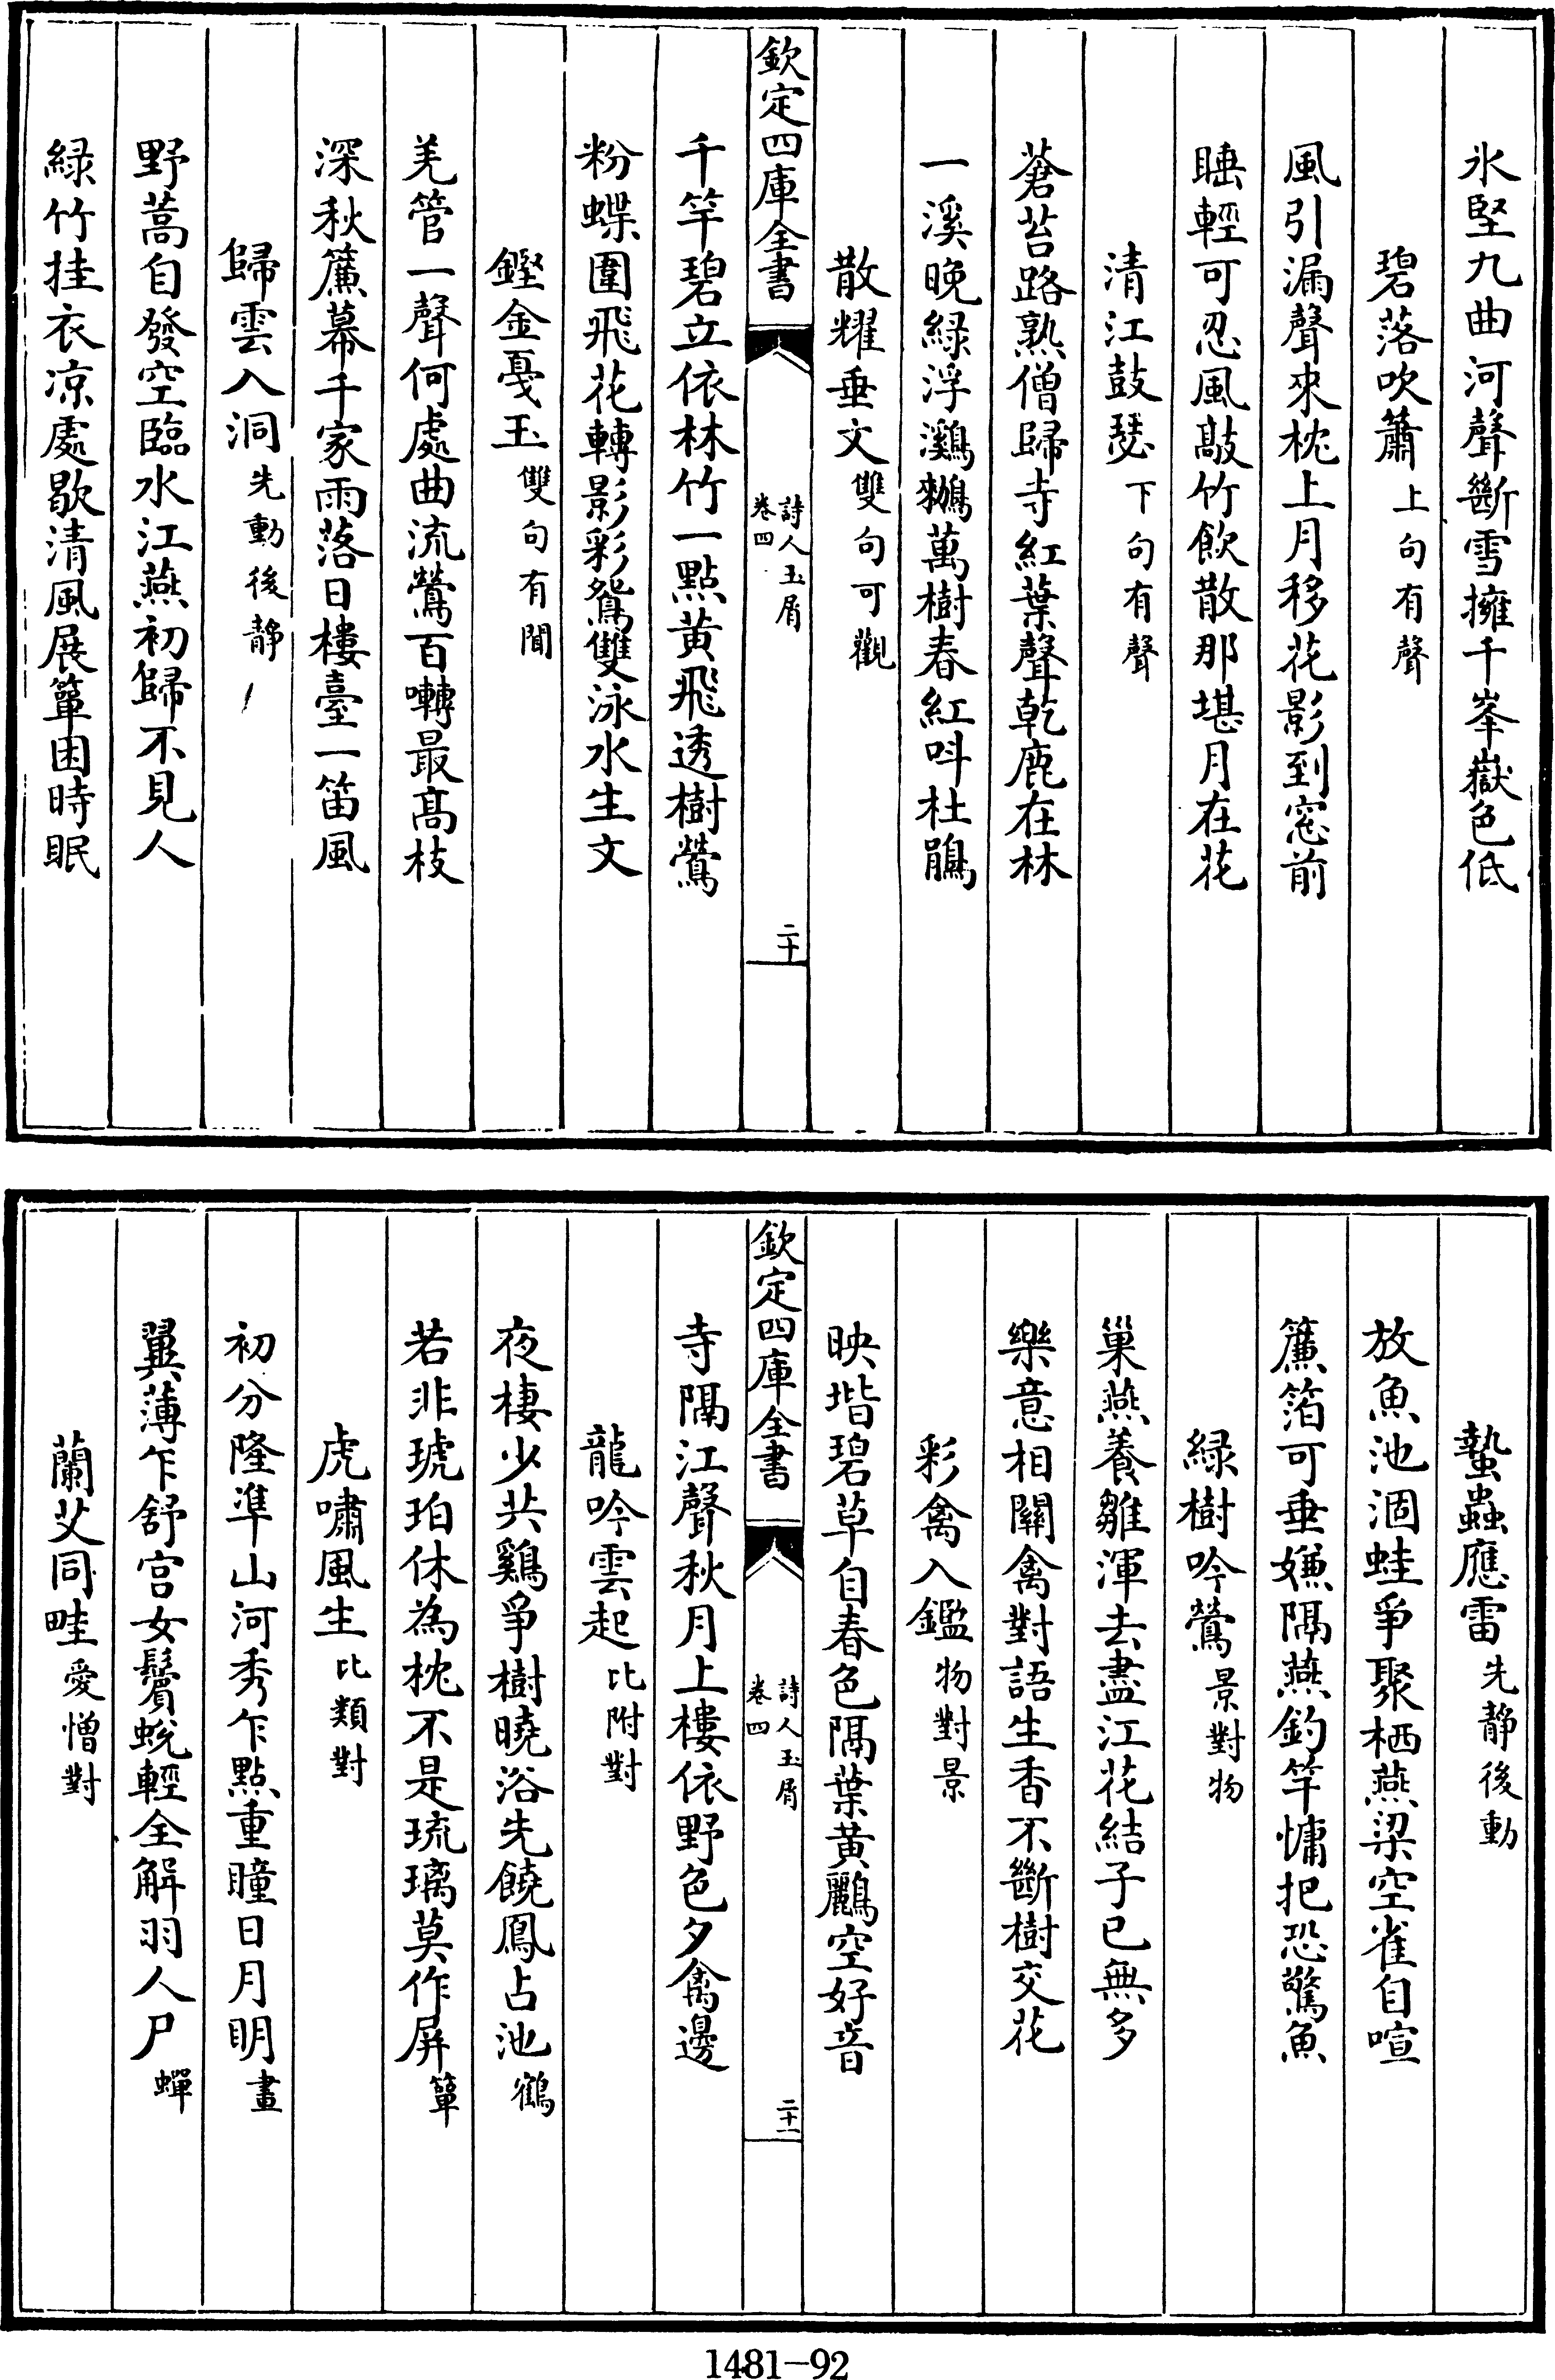 氷堅九曲河聲斷雪擁千峯嶽色低
碧落吹簫上句有聲
風引漏聲來枕上月移花影到窓前
睡輕可忍風敲竹飲散那堪月在花
清江鼓瑟下句有聲
蒼苔路熟僧歸寺紅葉聲乾鹿在林
一溪晚緑浮鸂鶒萬樹春紅呌杜鵑
散耀垂文雙句可觀
欽定四庫全書
詩人玉屑
卷四
二十
千竿碧立依林竹一點黄飛透樹鶯
粉蝶圍飛花轉影彩鴛雙泳水生文
鏗金戛玉雙句有聞
羌管一聲何處曲流鶯百囀最髙枝
深秋簾幕千家雨落日樓臺一笛風
歸雲入洞先動後静
野蒿自發空臨水江燕初歸不見人
緑竹挂衣凉處歇清風展簟困時眠
蟄蟲應雷先静後動
放魚池涸蛙爭聚栖燕梁空雀自喧
簾箔可垂嫌隔燕釣竿慵把恐驚魚
緑樹吟鶯景對物
巢燕養雛渾去盡江花結子已無多
樂意相關禽對語生香不斷樹交花
彩禽入鑑物對景
映堦碧草自春色隔葉黄鸝空好音
欽定四庫全書
詩人玉屑
卷四
二十一
寺隔江聲秋月上樓依野色夕禽邊
龍吟雲起比附對
夜棲少共鷄爭樹曉浴先饒鳳占池鶴
若非琥珀休為枕不是琉璃莫作屏簟
虎嘯風生比類對
初分隆準山河秀乍點重瞳日月明畫
翼薄乍舒宫女鬢蛻輕全解羽人尸蟬
蘭艾同畦愛憎對
1481-92